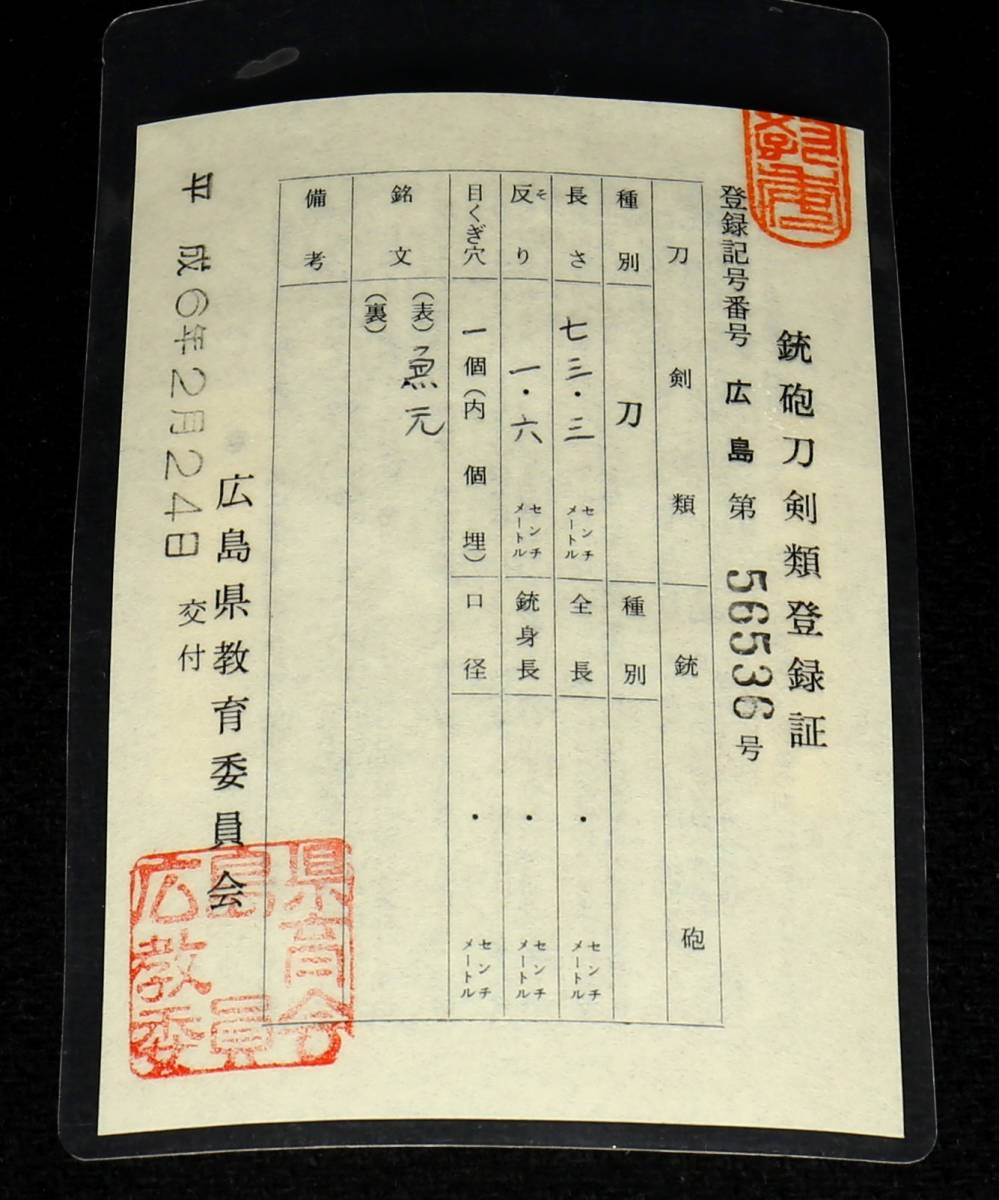 銃砲刀剣類登録証
登録記号番号 広島第 56536号
刀剣類
種別 刀
長さ 七三・三 センチメートル
反り そ 一・六 センチメートル
目くぎ穴 一個(内 個埋)
銘文 (表) 兼元
(裏)
備考
銃砲
種別
全長 ・ センチメートル
銃身長 ・ センチメートル
口径 ・ センチメートル
平成6年2月24日 交付
広島県教育委員会
広島県
教育
委員会